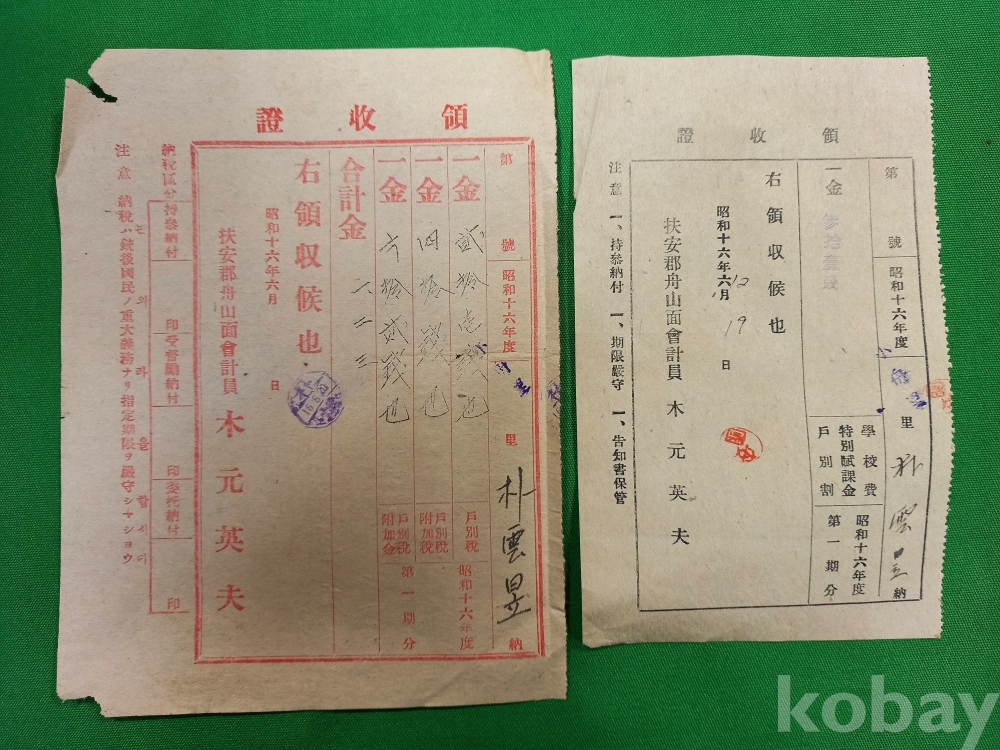 領收證
第 號 昭和十六年度 里 朴雲昱 納
一金 貳拾壱錢也 戶別稅 昭和十六年度
一金 四拾錢也 戶別稅附加稅
一金 六拾貳錢也 戶別稅附加金 第一期分
合計金 一二三
右領収候也
昭和十六年六月 日
扶安郡舟山面會計員 木元英夫
16.6.20
納稅區分 持參納付 印 受督勵納付 印 委托納付 印
注意 納稅ハ銃後國民ノ重大義務ナリ指定期限ヲ嚴守シャショウ
領收證
第 號 昭和十六年度 里 朴雲昱 納
一金 參拾壹錢 學校費特別賦課金戶別割 昭和十六年度第一期分
右領収候也
昭和十六年 月 日
12 19
扶安郡舟山面會計員 木元英夫
注意 一、持參納付 一、期限嚴守 一、告知書保管
kobay